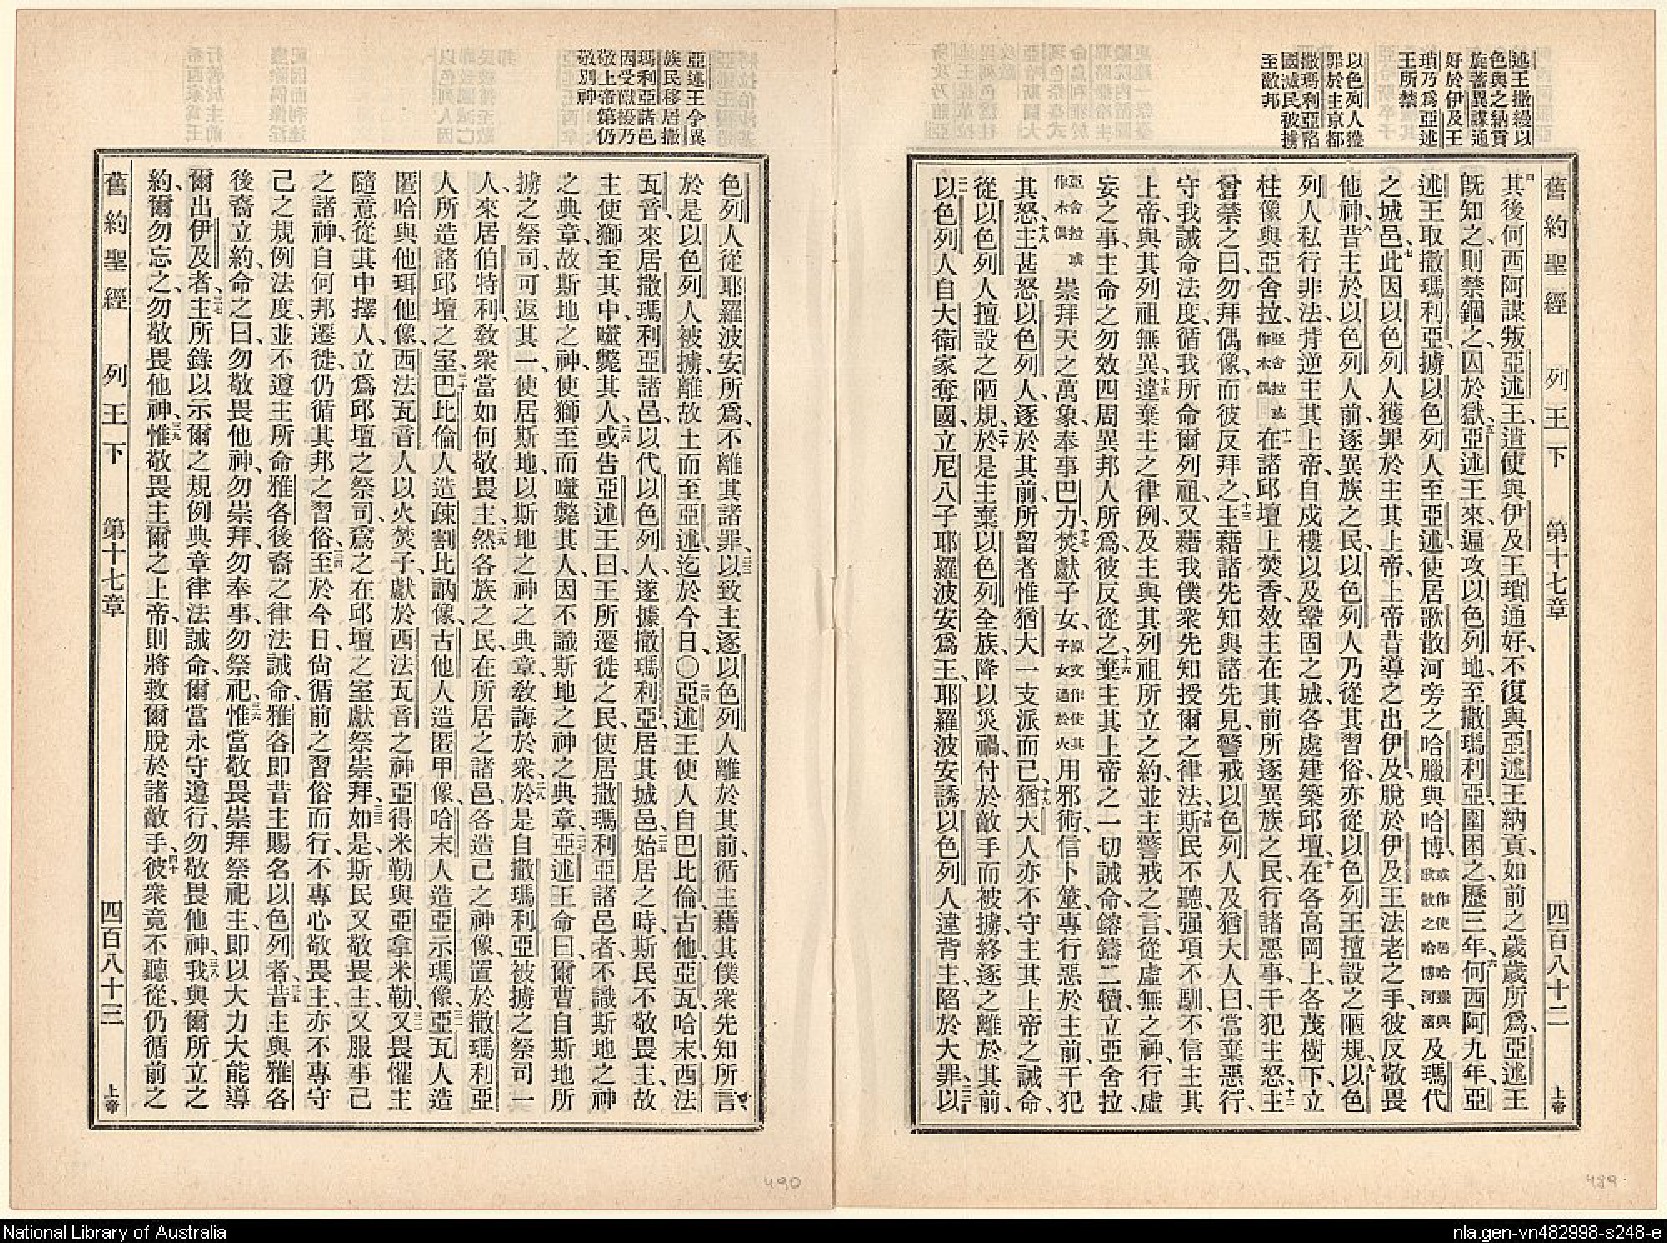 述王撒縵以
色與之納貢
旋蓄異謀通
好於伊及王
瑣乃爲亞述
王所禁
以色列人獲
罪於主京都
撒瑪利亞陷
國滅民被擄
至敵邦
舊約聖經 列王下 第十七章 四百八十二 上帝
四其後何西阿謀叛亞述王、遣使與伊及王瑣通好、不復與亞述王納貢、如前之歲歲所爲、亞述王
既知之、則禁錮之、囚於獄、五亞述王來遍攻以色列地、至撒瑪利亞、圍困之、歷三年、六何西阿九年、亞
述王取撒瑪利亞、擄以色列人至亞述、使居歌散河旁之哈臘與哈博、或作使居哈臘與歌散之哈博河濱及瑪代
之城邑、七此因以色列人獲罪於主其上帝、上帝昔導之出伊及、脫於伊及王法老之手、彼反敬畏
他神、八昔主於以色列人前、逐異族之民、以色列人乃從其習俗、亦從以色列王擅設之陋規、九以色
列人私行非法、背逆主其上帝、自戍樓以及鞏固之城、各處建築邱壇、十在各高岡上、各茂樹下、立
柱像與亞舍拉、亞舍拉或作木偶十一在諸邱壇上焚香、效主在其前所逐異族之民、行諸惡事、干犯主怒、十二主
曾禁之曰、勿拜偶像、而彼反拜之、十三主藉諸先知與諸先見、警戒以色列人及猶大人曰、當棄惡行、
守我誡命法度、循我所命爾列祖、又藉我僕衆先知授爾之律法、十四斯民不聽、强項不馴、不信主其
上帝、與其列祖無異、十五違棄主之律例、及主與其列祖所立之約、並主警戒之言、從虛無之神、行虛
妄之事、主命之勿效四周異邦人所爲、彼反從之、十六棄主其上帝之一切誡命、鎔鑄二犢、立亞舍拉、
亞舍拉或作木偶崇拜天之萬象、奉事巴力、十七焚獻子女、原文作使其子女過於火用邪術、信卜筮、專行惡於主前、干犯
其怒、十八主甚怒以色列人、逐於其前、所留者惟猶大一支派而已、十九猶大人亦不守主其上帝之誡命、
從以色列人擅設之陋規、二十於是主棄以色列全族、降以災禍、付於敵手而被擄、終逐之離於其前、
二一以色列人自大衛家奪國、立尼八子耶羅波安爲王、耶羅波安誘以色列人違背主、陷於大罪、二二以
亞述王令異
族民移居撒
瑪利亞諸邑
因受獅擾乃
敬上帝第仍
敬別神
色列人從耶羅波安所爲、不離其諸罪、二三以致主逐以色列人離於其前、循主藉其僕衆先知所言、
於是以色列人被擄、離故土而至亞述、迄於今日、〇二四亞述王使人自巴比倫、古他、亞瓦、哈末、西法
瓦音、來居撒瑪利亞諸邑、以代以色列人、遂據撒瑪利亞、居其城邑、二五始居之時、斯民不敬畏主、故
主使獅至其中、噬斃其人、二六或告亞述王曰、王所遷徙之民、使居撒瑪利亞諸邑者、不識斯地之神
之典章、故斯地之神、使獅至而噬斃其人、因不識斯地之神之典章、二七亞述王命曰、爾曹自斯地所
擄之祭司、可返其一、使居斯地、以斯地之神之典章、敎誨於衆、二八於是自撒瑪利亞被擄之祭司一
人、來居伯特利、敎衆當如何敬畏主、二九然各族之民、在所居之諸邑、各造己之神像、置於撒瑪利亞
人所造諸邱壇之室、三十巴比倫人造疎割比訥像、古他人造匿甲像、哈末人造亞示瑪像、三一亞瓦人造
匿哈與他珥他像、西法瓦音人以火焚子、獻於西法瓦音之神亞得米勒與亞拿米勒、三二又畏懼主、
隨意從其中擇人、立爲邱壇之祭司、爲之在邱壇之室獻祭崇拜、三三如是、斯民又敬畏主、又服事己
之諸神、自何邦遷徙、仍循其邦之習俗、三四至於今日、尙循前之習俗而行、不專心敬畏主、亦不專守
己之規例法度、並不遵主所命雅各後裔之律法誡命、雅各卽昔主賜名以色列者、三五昔主與雅各
後裔立約、命之曰、勿敬畏他神、勿崇拜、勿奉事、勿祭祀、三六惟當敬畏崇拜祭祀主、卽以大力大能導
爾出伊及者、三七主所錄以示爾之規例典章律法誡命、爾當永守遵行、勿敬畏他神、三八我與爾所立之
約、爾勿忘之、勿敬畏他神、三九惟敬畏主爾之上帝、則將救爾脫於諸敵手、四十彼衆竟不聽從、仍循前之
舊約聖經 列王下 第十七章 四百八十三 上帝
490
489
National Library of Australia
nla.gen-vn482998-s248-e